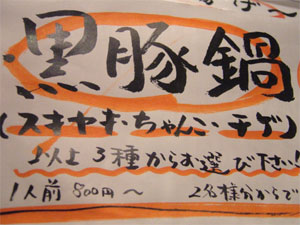 黒豚鍋
(スキヤキ・ちゃんこ・チゲ)
以上3種からお選び下さい!
1人前 800円〜
2名様分からで